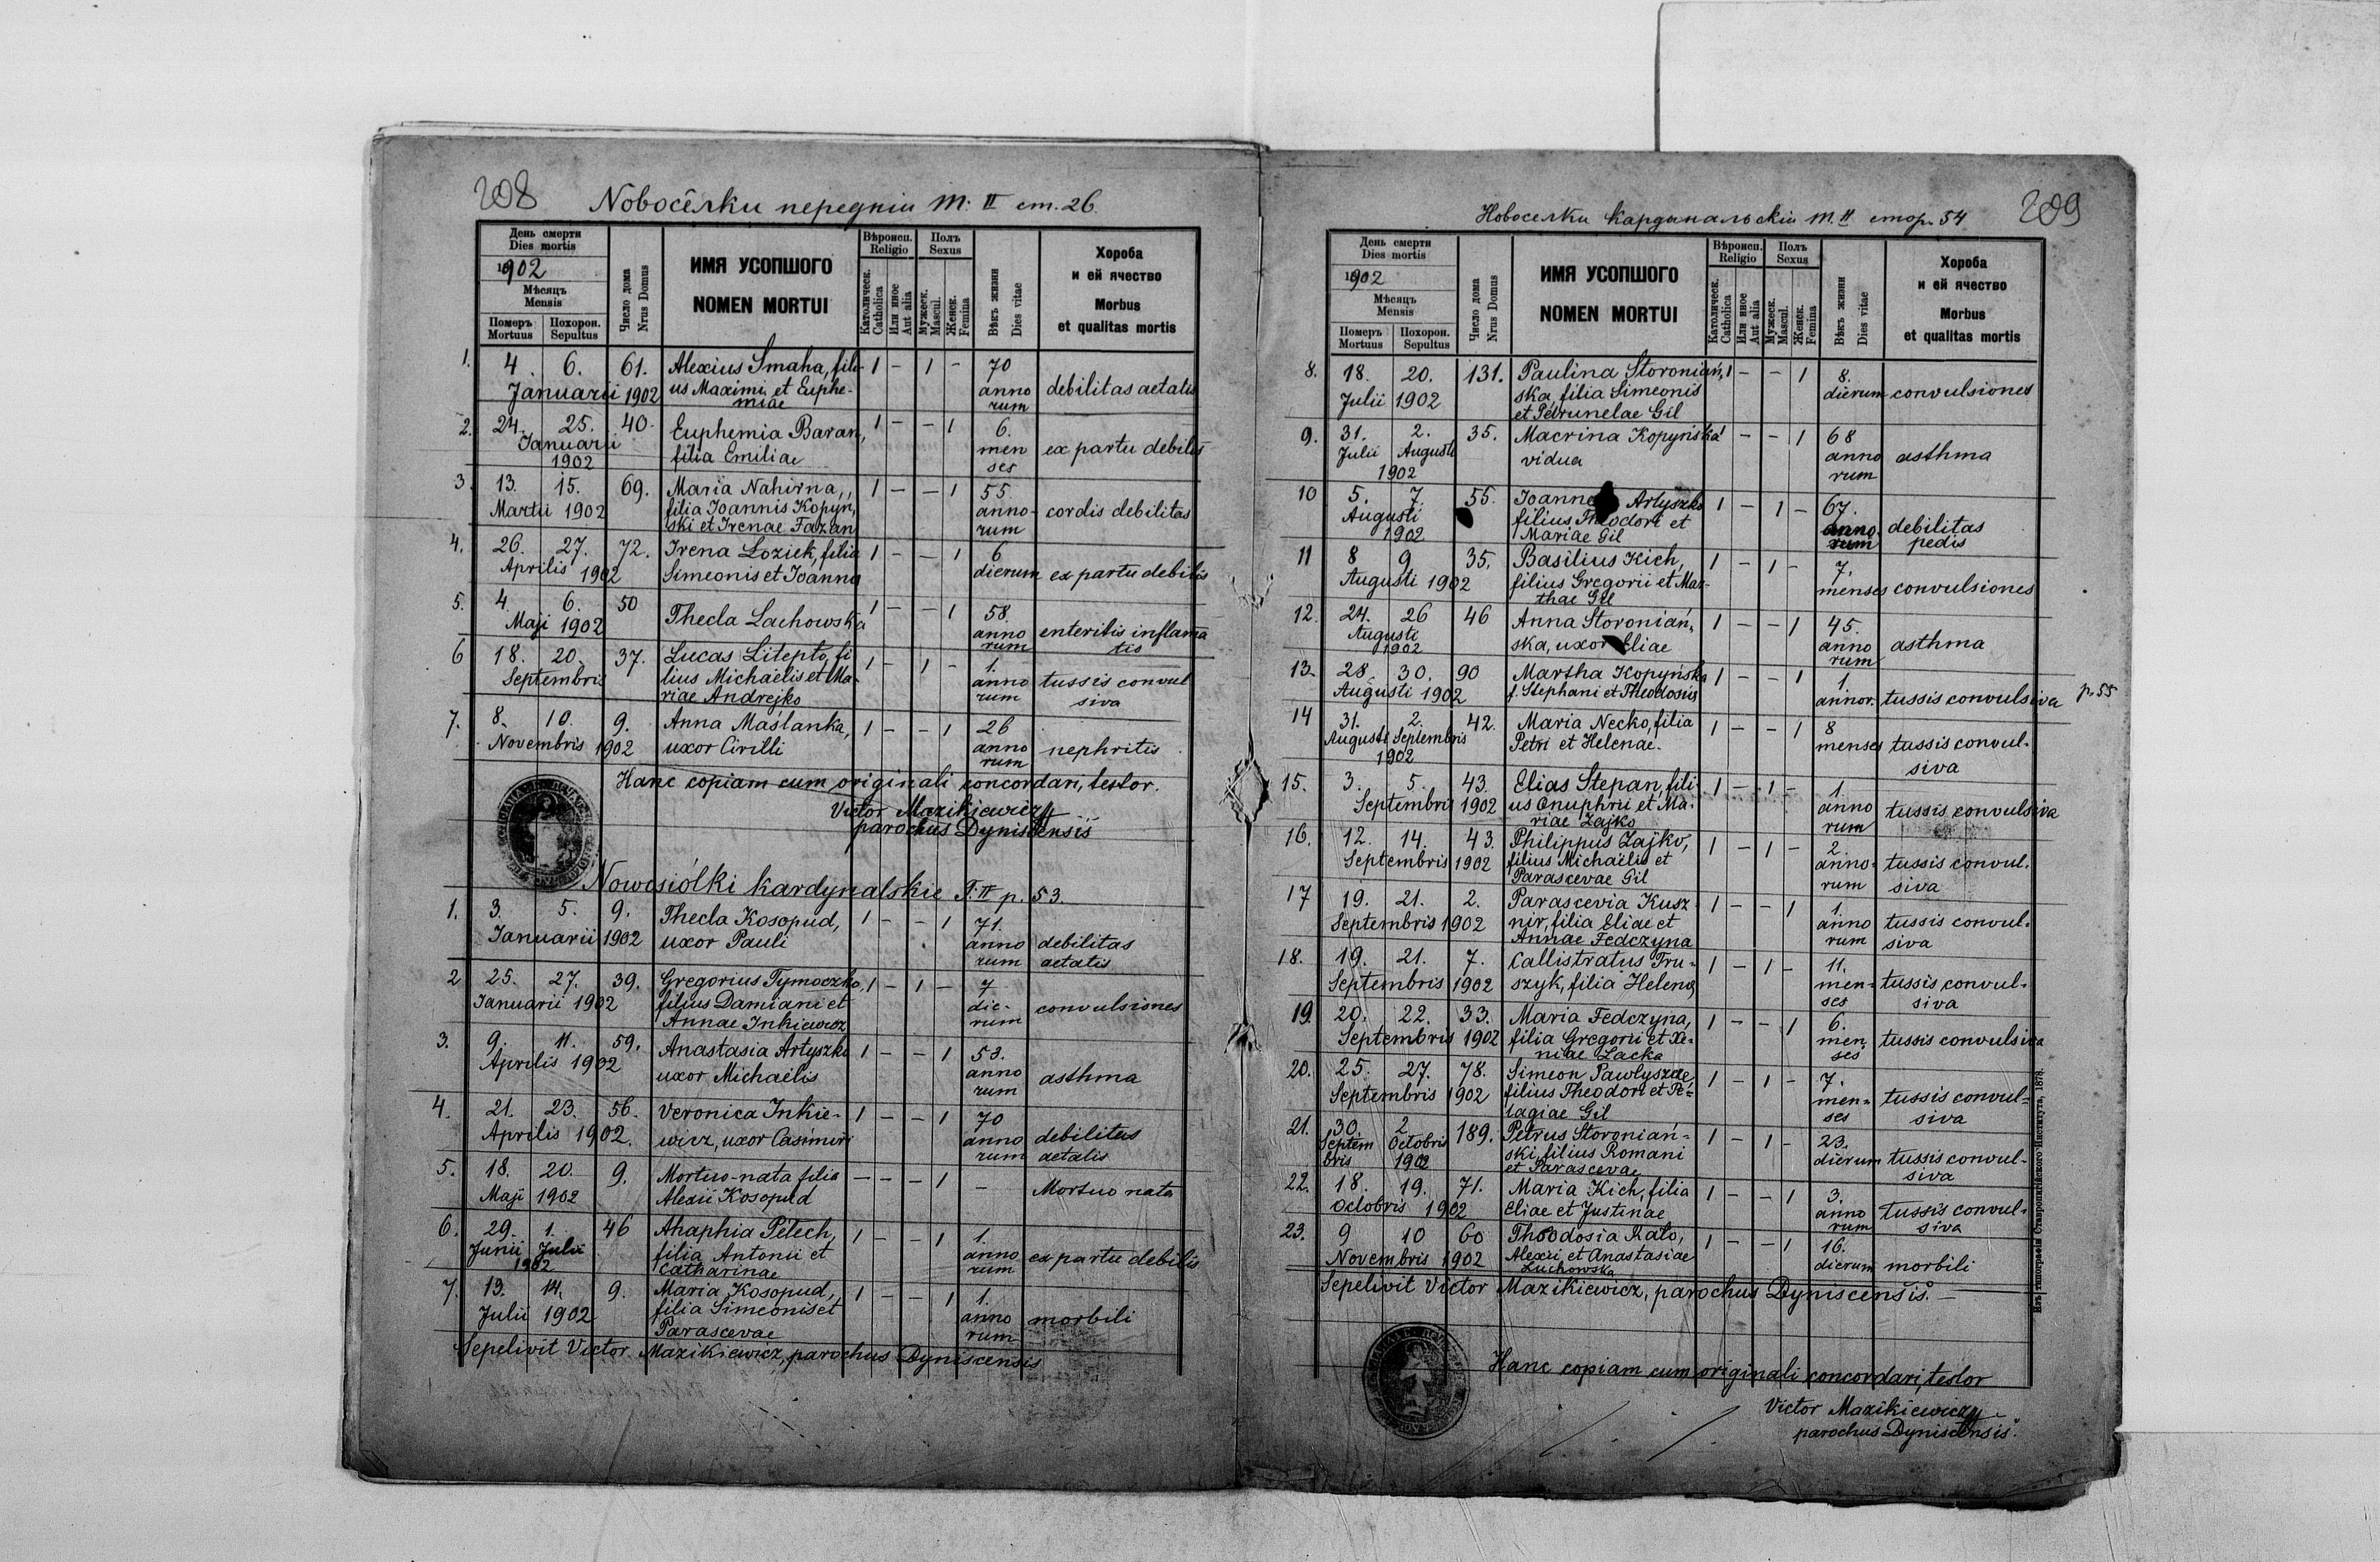 208
Новосѣлки переднiи т. II ст. 26.
День смерти
Dies mortis
1902
Мѣсяцъ
Mensis
Померъ
Mortuus
Похорон.
Sepultus
Число дома
Nrus Domus
ИМЯ УСОПШОГО
NOMEN MORTUI
Вѣроисп.
Religio
Католическ.
Catholica
Или иное
Aut alia
Полъ
Sexus
Мужеск.
Mascul.
Женск.
Femina
Вѣкъ жизни
Dies vitae
Хороба
и ей ячество
Morbus
et qualitas mortis
1. 4. 6. 61. Alexius Smaha, fili- 1 – 1 – 70
Januarii 1902 us Maximi et Euphe- anno debilitas aetatis
miae rum
2. 24. 25. 40. Euphemia Baran, 1 – – 1 6.
Januarii filia Emiliae men ex partu debilis
1902 ses
3. 13. 15. 69. Maria Nahirna, 1 – – 1 55.
Martii 1902 filia Joannis Kopyń, anno- cordis debilitas
ski et Irenae Fazan rum
4. 26. 27. 72. Irena Łoziek, filia 1 – – 1 6
Aprilis 1902 Simeonis et Joanna dierum ex partu debilis
5. 4. 6. 50 Thecla Lachowska 1 – – 1 58.
Maji 1902 anno enteritis inflama
rum tis
6 18. 20. 37. Lucas Litepło, fi 1 – 1 – 1.
Septembris lius Michaelis et Ma- anno tussis convul
riae Andrejko rum siva
7. 8. 10. 9. Anna Maślanka, 1 – – 1 26
Novembris 1902 uxor Cirilli anno nephritis
rum
Hanc copiam cum originali concordari, testor.
Victor Mazikiewicz
parochus Dyniscensis
Nowosiółki kardynalskie T. II p. 53.
1. 3. 5. 9. Thecla Kosopud, 1 – – 1 71.
Januarii 1902 uxor Pauli anno debilitas
rum aetatis
2 25. 27. 39. Gregorius Tymoczko 1 – 1 – 7
Januarii 1902 filius Damiani et die- convulsiones
Annae Inkiewicz rum
3. 9. 11. 59. Anastasia Artyszko 1 – – 1 53.
Aprilis 1902 uxor Michaëlis anno asthma
rum
4. 21. 23. 56. Veronica Inkie- 1 – – 1 70
Aprilis 1902. wicz, uxor Casimiri anno debilitas
rum aetatis
5. 18. 20. 9. Mortuo-nata filia – – – 1 –
Maji 1902 Alexii Kosopud Mortuo nata
6. 29. 1. 46 Ahaphia Petech, 1 – – 1 1.
Junii Julii filia Antonii et anno ex partu debilis
1902 Catharinae rum
7. 13. 14. 9. Maria Kosopud, 1 – – 1 1.
Julii 1902 filia Simeonis et anno morbili
Parascevae rum
Sepelivit Victor Mazikiewicz, parochus Dyniscensis
209
Новоселки кардынальскiи т. II стор. 54
День смерти
Dies mortis
1902
Мѣсяцъ
Mensis
Померъ
Mortuus
Похорон.
Sepultus
Число дома
Nrus Domus
ИМЯ УСОПШОГО
NOMEN MORTUI
Вѣроисп.
Religio
Католическ.
Catholica
Или иное
Aut alia
Полъ
Sexus
Мужеск.
Mascul.
Женск.
Femina
Вѣкъ жизни
Dies vitae
Хороба
и ей ячество
Morbus
et qualitas mortis
8. 18. 20. 131. Paulina Storonian, 1 – – 1 8.
Julii 1902 ska, filia Simeonis dierum convulsiones
et Petrunelae Gil
9. 31. 2. 35. Macrina Kopyńska 1 – – 1 68
Julii Augusti vidua anno asthma
1902 rum
10 5. 7. 55. Artyszko 1 – 1 – 67.
Augusti filius Theodori et anno- debilitas
1902 Mariae Gil rum pedis
11 8 9 35. Basilius Kich, 1 – 1 – 7.
Augusti 1902 filius Gregorii et Mar- menses convulsiones
thae Gil
12. 24. 26 46 Anna Storoniań- 1 – – 1 45.
Augusti ska, uxor Eliae anno asthma
1902 rum
13. 28. 30. 90 Martha Kopyńska 1 – – 1 1.
Augusti 1902 f. Stephani et Theodosiae annor. tussis convulsiva p. 55
14 31. 2. 42. Maria Necko, filia 1 – – 1 8
Augusti Septembris Petri et Helenae. menses tussis convul-
1902 siva
15. 3. 5. 43. Elias Stepan, fili- 1 – 1 – 1.
Septembris 1902 us Onuphrii et Ma- anno tussis convulsiva
riae Zajko rum
16. 12. 14. 43. Philippus Zajko, 1 – 1 – 2.
Septembris 1902 filius Michaëlis et anno- tussis convul-
Parascevae Gil rum siva
17 19. 21. 2. Parascevia Kusz- 1 – – 1 1.
Septembris 1902 nir, filia Eliae et anno tussis convul-
Annae Fedczyna rum siva
18. 19. 21. 7. Callistratus Tru- 1 – 1 – 11.
Septembris 1902 szyk, filia Helena men- tussis convul-
ses siva
19. 20. 22. 33. Maria Fedczyna, 1 – – 1 6.
Septembris 1902 filia Gregorii et Xe- men tussis convulsiva
niae Łacka ses
20. 25. 27. 78. Simeon Pawłyszcze 1 – 1 – 7.
Septembris 1902 filius Theodori et Pe- men- tussis convul-
lagiae Gil ses siva
21. 30. 2. 189. Petrus Storoniań- 1 – 1 – 23.
Septem Octobris ski, filius Romani dierum tussis convul-
bris 1902 et Parascevae siva
22. 18. 19. 71. Maria Kich, filia 1 – – 1 3.
Octobris 1902 Eliae et Justinae anno tussis convul-
rum siva
23. 9 10 60 Theodosia Rato, 1 – – 1 16.
Novembris 1902 Alexii et Anastasiae dierum morbili
Luchowska
Sepelivit Victor Mazikiewicz, parochus Dyniscensis. –
Hanc copiam cum originali concordari, testor
Victor Mazikiewicz
parochus Dyniscensis.
Изъ типографiи Ставропигiйского Института, 1878.